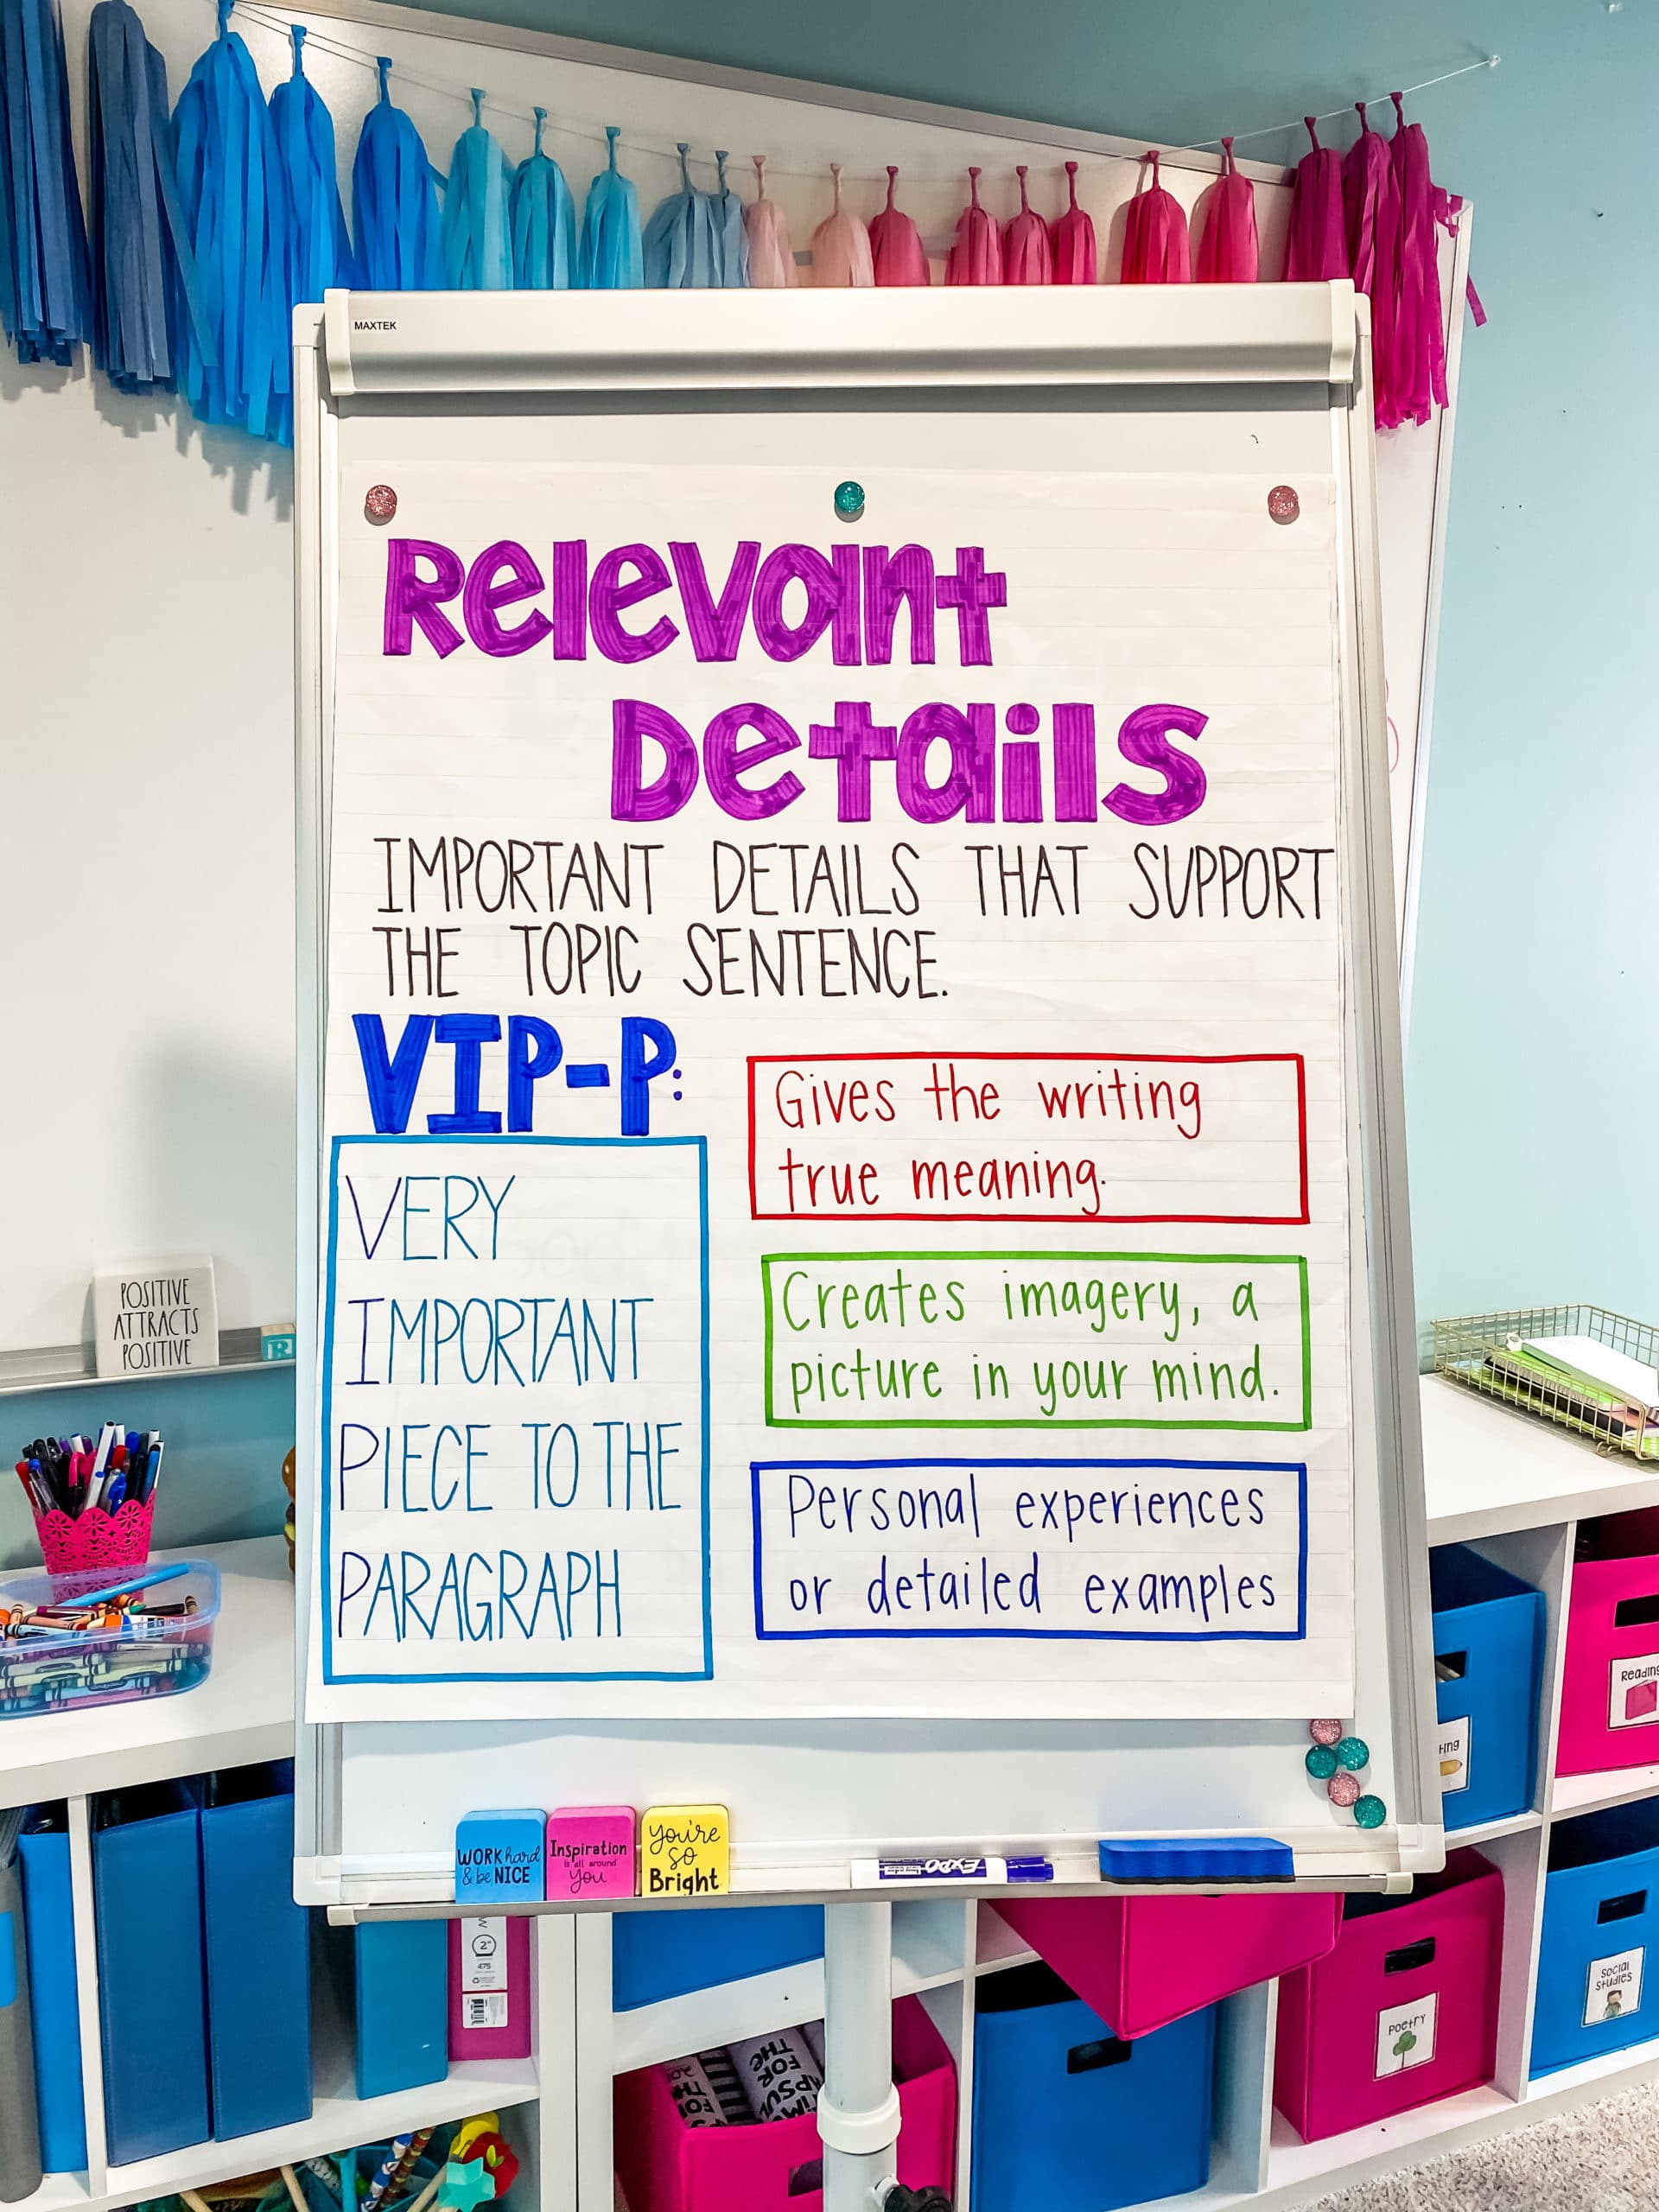 MAXTEK
Relevant
Details
IMPORTANT DETAILS THAT SUPPORT
THE TOPIC SENTENCE.
VIP-P:
VERY
IMPORTANT
PIECE TO THE
PARAGRAPH
Gives the writing
true meaning.
Creates imagery, a
picture in your mind.
Personal experiences
or detailed examples
POSITIVE
ATTRACTS
POSITIVE
R
WORK hard
& be NICE
Inspiration
is all around
you
you're
so
Bright
EXPO
2"
475
Reading
Social
Studies
Poetry
FOR
THE